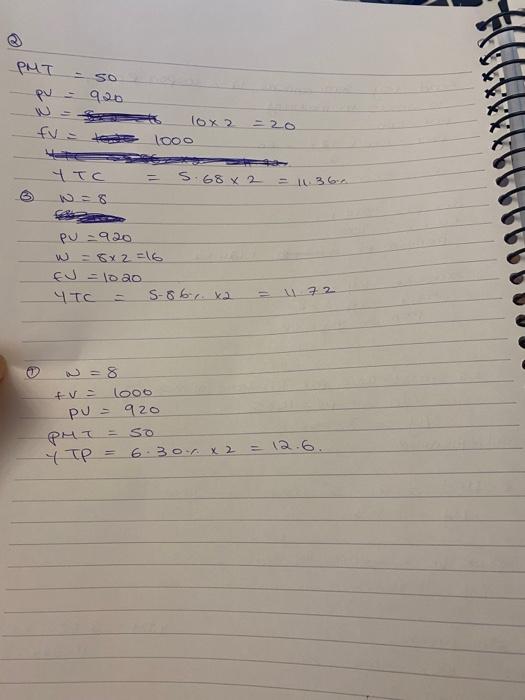 ②
PMT = 50
PV = 920
N = 10 x 2 = 20
FV = 1000
YTC = 5.68 x 2 = 11.36%
③ N = 8
PV = 920
N = 8 x 2 = 16
FV = 1020
YTC = 5.86% x2 = 11.72
④ N = 8
FV = 1000
PV = 920
PMT = 50
YTP = 6.30% x 2 = 12.6.